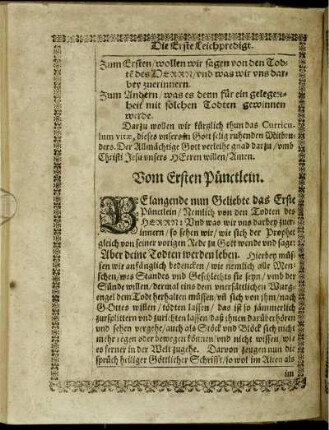 Die Erste Leichpredigt.
Zum Ersten / wollen wir sagen von den Tod-
tē des HERRN / vnd was wir vns dar-
bey zuerinnern.
Zum Andern / was es denn für ein gelegen-
heit mit solchen Todten gewinnen
werde.
Darzu wollen wir kürtzlich thun das Curricu-
lum vitæ, dieses vnsers in Gott selig ruhenden Mitbru-
ders. Der Allmächtige Gott verleihe gnad darzu / vmb
Christi Jesu vnsers HErren willen / Amen.
Vom Ersten Pünctlein.
BElangende nun Geliebte das Erste
Pünctlein / Nemlich von den Todten des
HERRN: Vnd was wir vns darbey zuer-
innern / so sehen wir / wie sich der Prophet
gleich von seiner vorigen Rede zu Gott wende vnd sagt:
Aber deine Todten werden leben. Hierbey müs-
sen wir anfänglich bedencken / wie nemlich alle Men-
schen / wes Standes vnd Geschlechts sie seyn / vmb der
Sünde willen / dermal eins dem vnersättlichen Würg-
engel dem Todt herhalten müssen / vñ sich von jhm / nach
GOttes willen / tödten lassen / das sie so jämmerlich
zusplittern vnd zurichten lassen / daß jhnen darüber hören
vnd sehen vergehe / auch als Stöck vnd Blöck sich nicht
mehr regen oder bewegen können / vnd nicht wissen / wie
es ferner in der Welt zugehe. Darvon zeugen nun die
sprüch heiliger Göttlicher Schrifft / so wol im Alten als
im